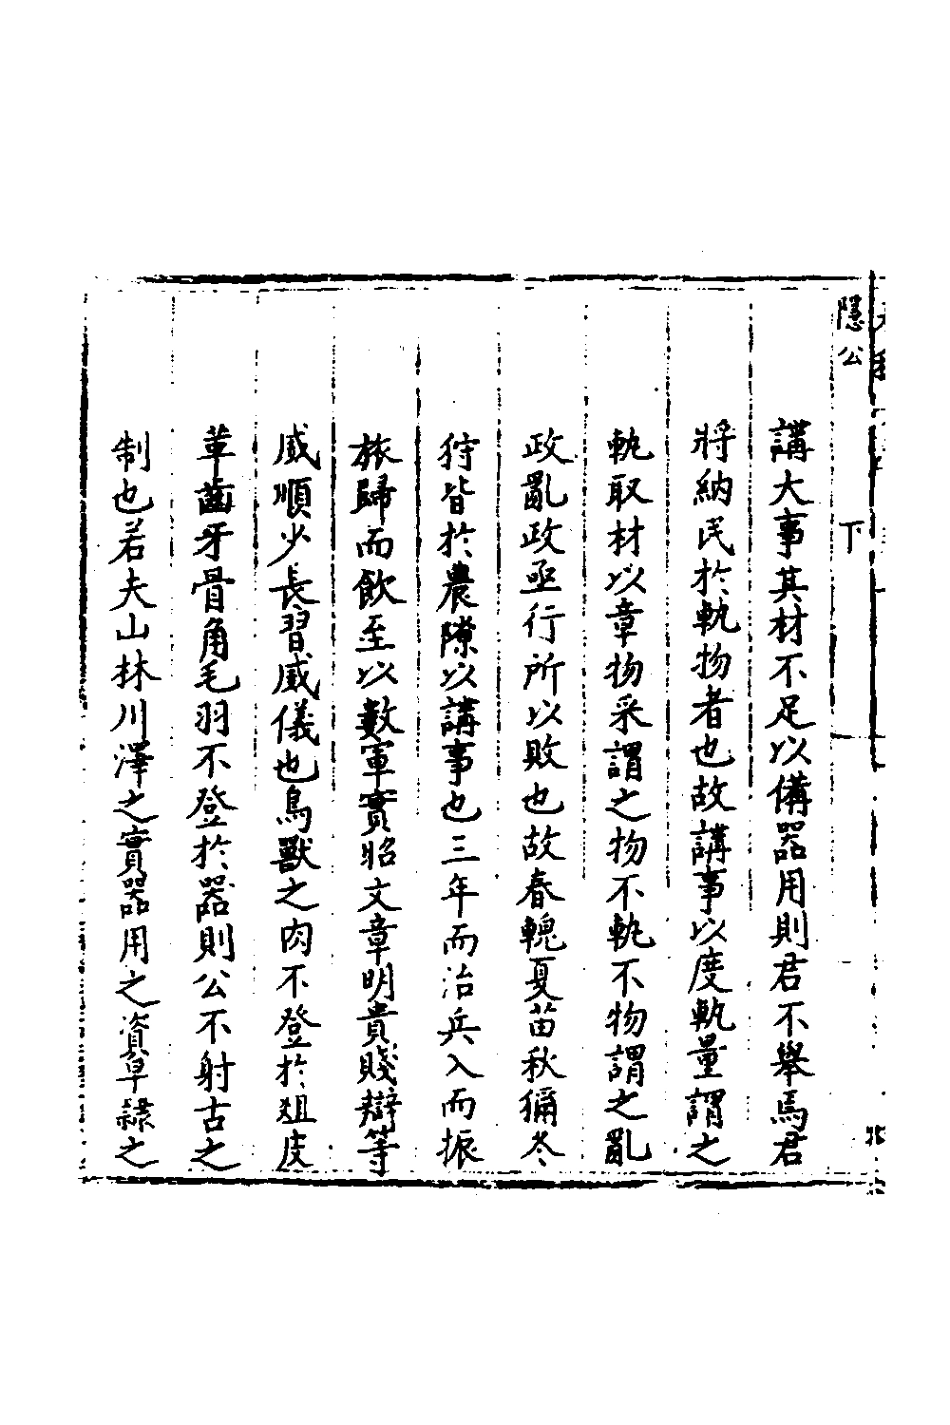 隱公 下
講大事其材不足以備器用則君不舉焉君
將納民於軌物者也故講事以度軌量謂之
軌取材以章物采謂之物不軌不物謂之亂
政亂政亟行所以敗也故春蒐夏苗秋獮冬
狩皆於農隙以講事也三年而治兵入而振
旅歸而飲至以數軍實昭文章明貴賤辯等
威順少長習威儀也鳥獸之肉不登於俎皮
革齒牙骨角毛羽不登於器則公不射古之
制也若夫山林川澤之實器用之資皁隸之